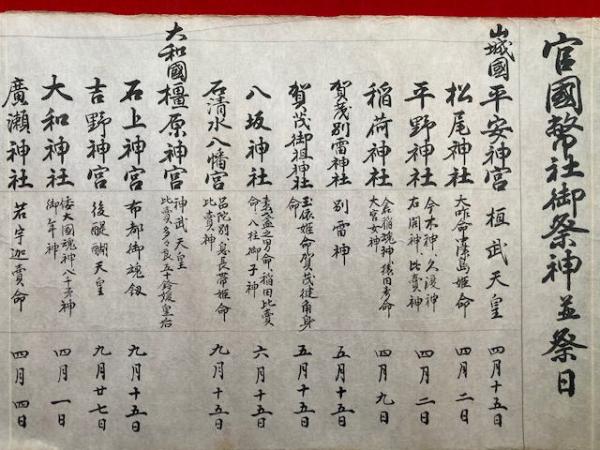 官國幣社御祭神並祭日
山城國 平安神宮 桓武天皇 四月十五日
松尾神社 大咋命 市杵島姫命 四月二日
平野神社 今木神、久度神 古開神、比賣神 四月二日
稲荷神社 倉稲魂神 猿田彦命 大宮女神 四月九日
賀茂別雷神社 別雷神 五月十五日
賀茂御祖神社 玉依姫命 賀茂建角身命 五月十五日
八坂神社 素盞之男命、稲田比賣命、八柱御子神 六月十五日
石清水八幡宮 息長帯姫命 比賣神 九月十五日
大和國 橿原神宮 神武天皇 比賣多々良五十鈴媛皇后
石上神宮 布都御魂劔 九月十五日
吉野神宮 後醍醐天皇 九月廿七日
大和神社 倭大國魂神 八千戈神 御年神 四月一日
廣瀬神社 若宇迦賣命 四月四日